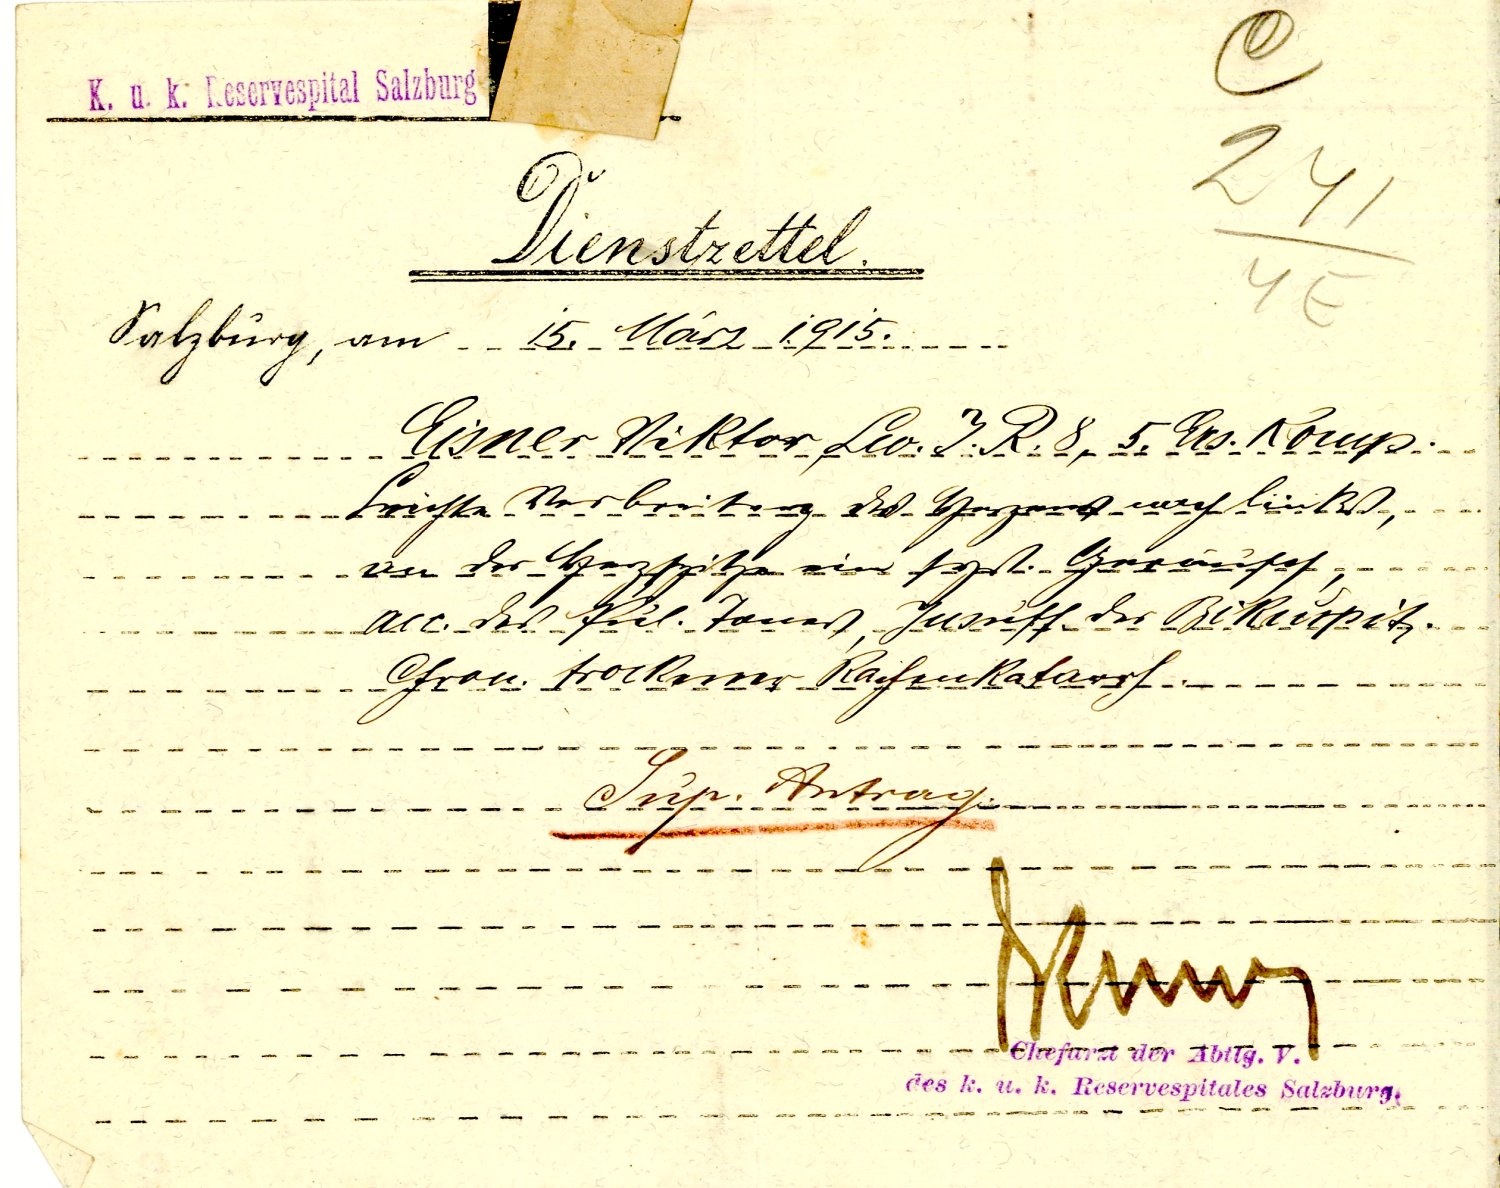 K. u. k. Reservespital Salzburg
C
241
4E
Dienstzettel.
Salzburg, am 15. März 1915.
Eisner Viktor, I. R. 8, 5. Ers. Komp.
Leichte Verbreiterg des Herzens nach links,
an der Herzspitze ein syst. Geräusch,
acc. des Pul. Tones, Insuff. der Bikuspit.
Chron. trockener Rachenkatarrh.
Sup. Antrag.
Chefarzt der Abtlg. V.
des k. u. k. Reservespitales Salzburg.